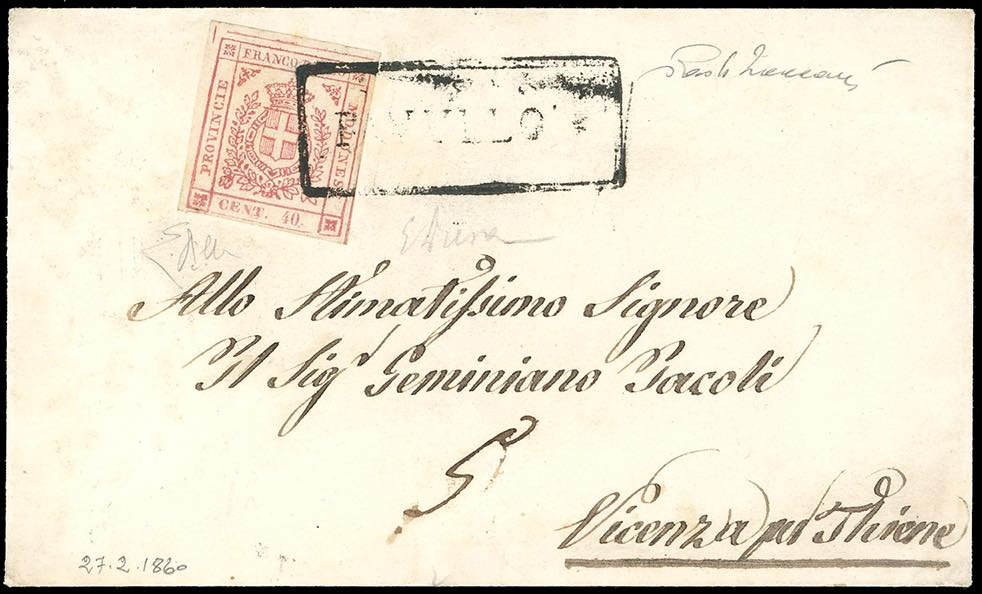 FRANCO BOLLO
PROVINCIE
MODONESI
CENT. 40.
NULLO
EDiena
Allo Stimatissimo Signore
Il Sigr Geminiano Jacoli
5
Vicenza per Thiene
27.2.1860